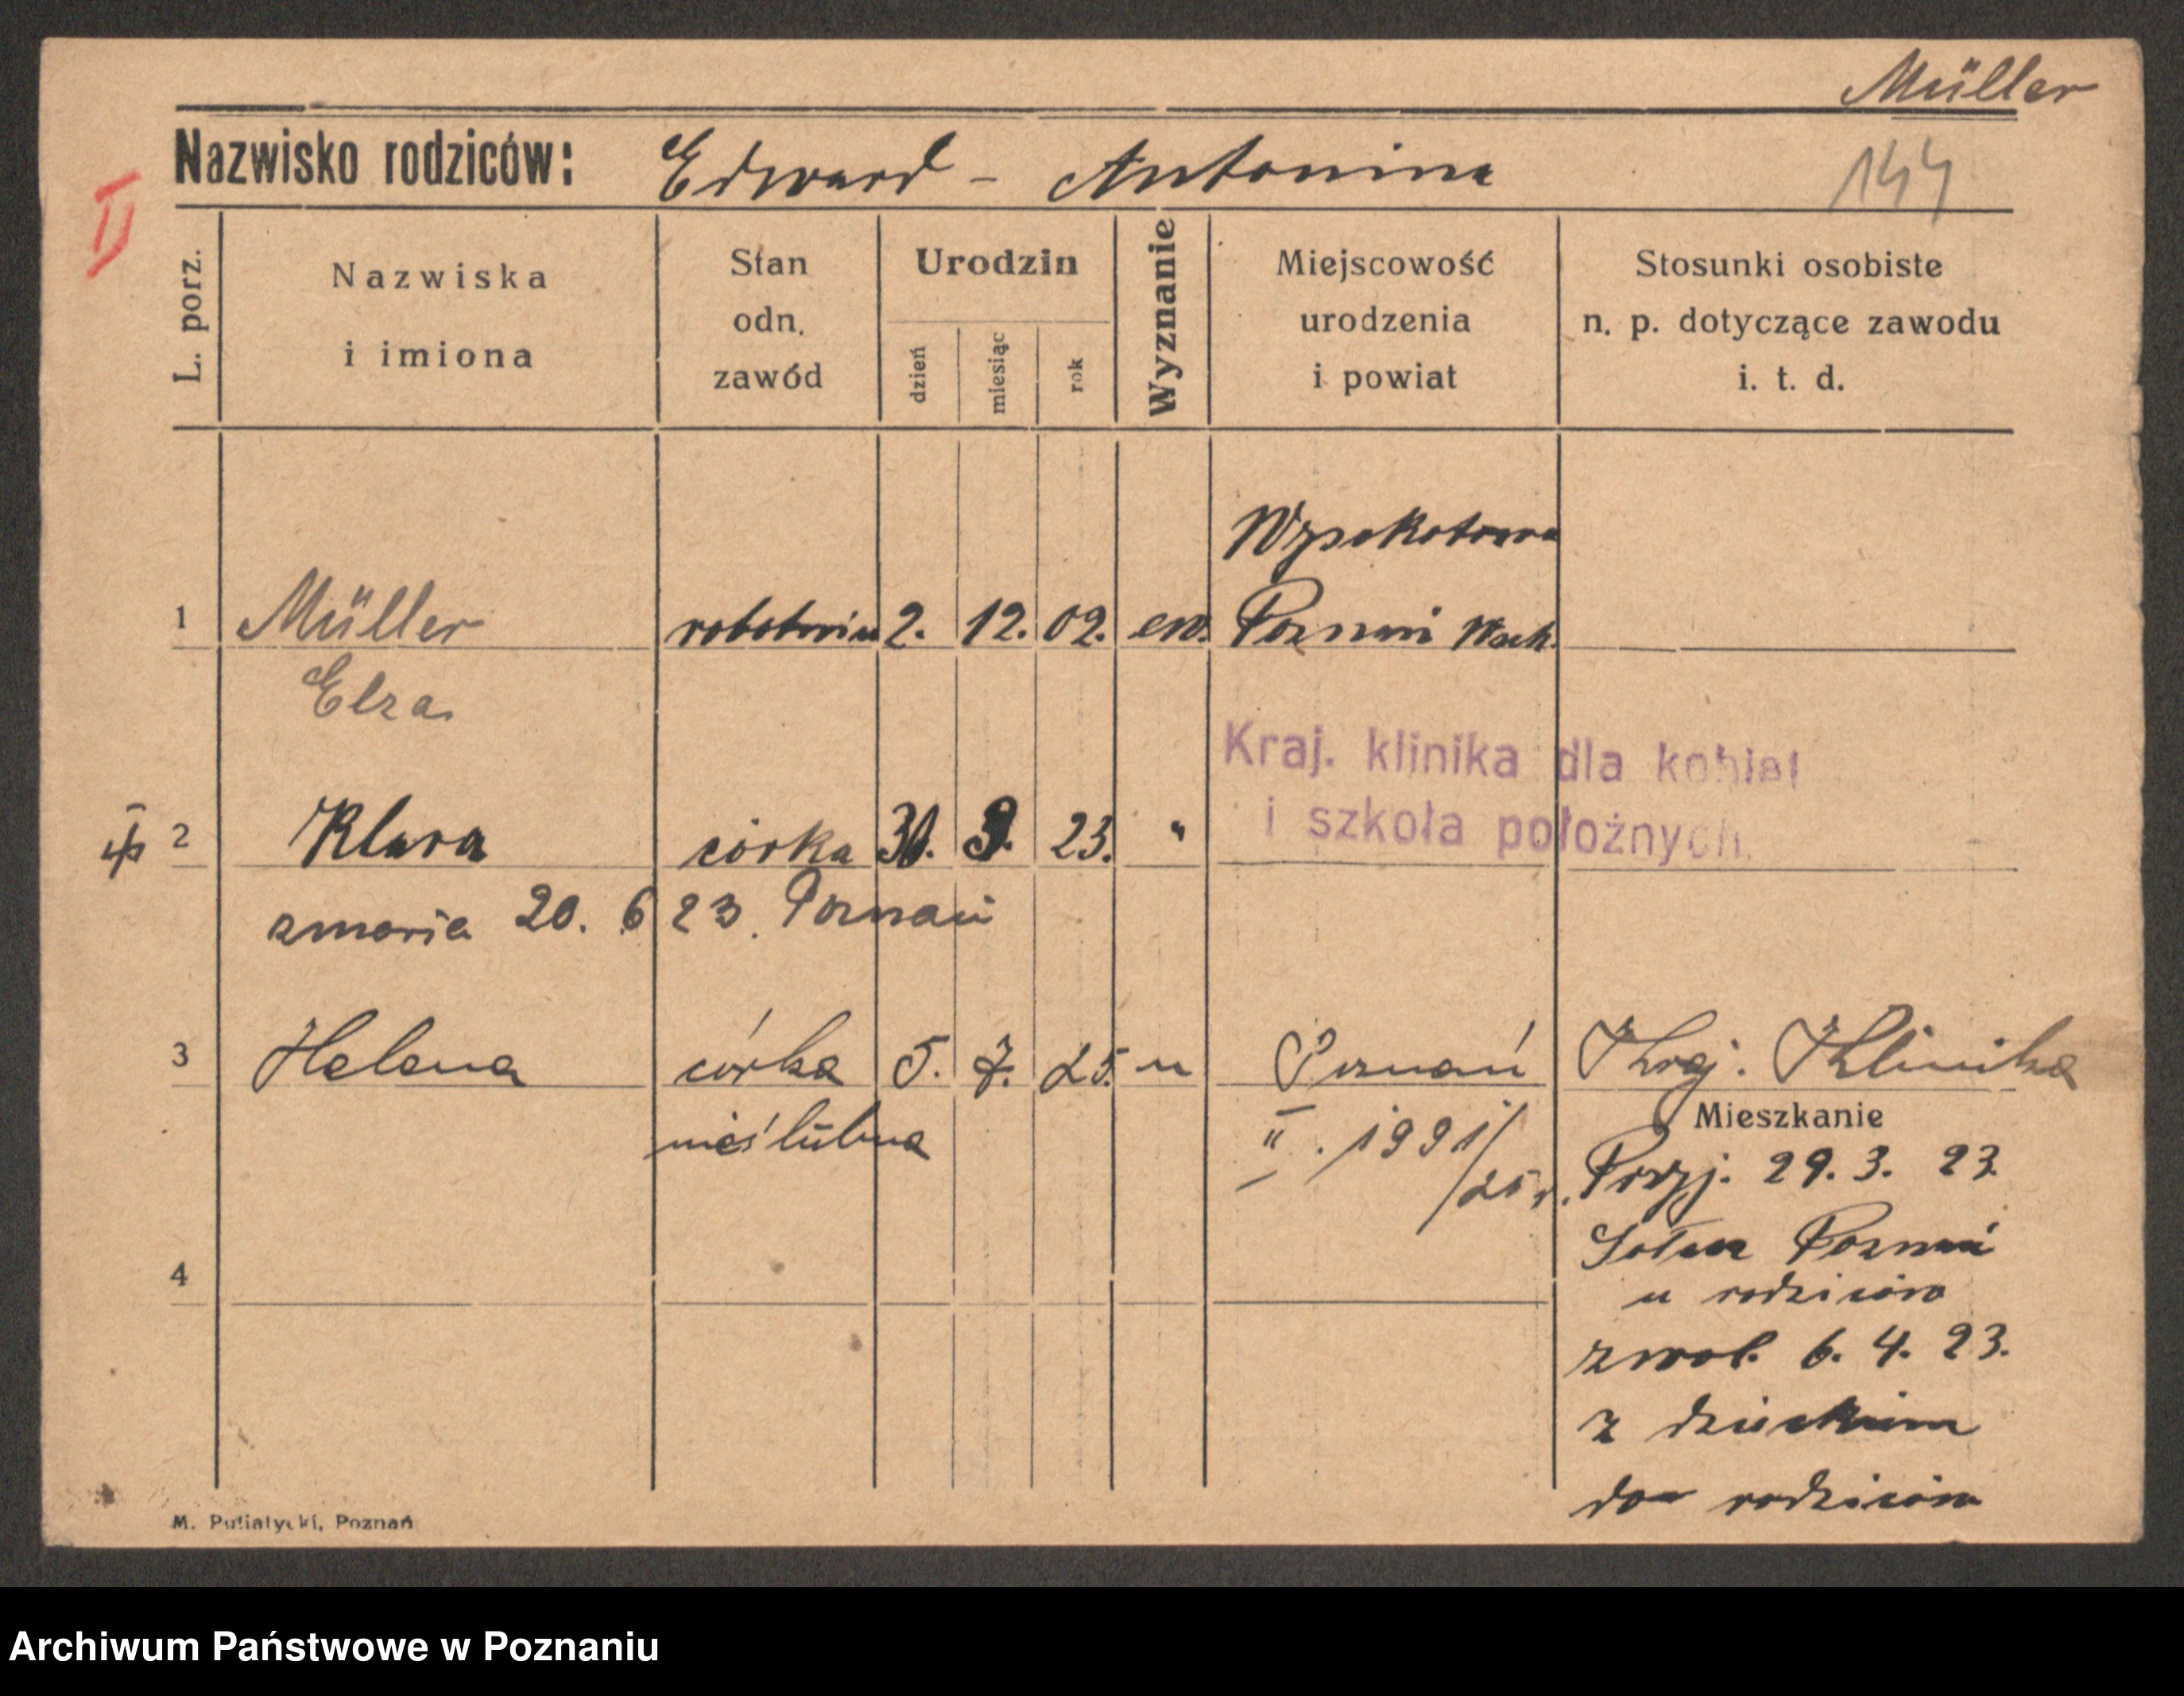 Müller
Nazwisko rodziców: Edward - Antonina
144
II
L. porz.
Nazwiska i imiona
Stan odn. zawód
Urodzin
dzień
miesiąc
rok
Wyznanie
Miejscowość urodzenia i powiat
Stosunki osobiste n. p. dotyczące zawodu i. t. d.
Wysokotowo
1 Müller robotnica 2. 12. 02. ew. Poznań Wsch.
Elza
Kraj. klinika dla kobiet
i szkoła położnych.
2 Klara córka 30. 3. 23. "
zmarła 20. 6 23. Poznań
3 Helena córka 5. 7. 25. " Poznań Kraj. Klinika
nieślubna
II. 1991/25 r.
Mieszkanie
Przyj. 29. 3. 23
Sołacz Poznań
u rodziców
4
zwol. 6. 4. 23.
z dzieckiem
do rodziców
M. Putiatycki, Poznań
Archiwum Państwowe w Poznaniu